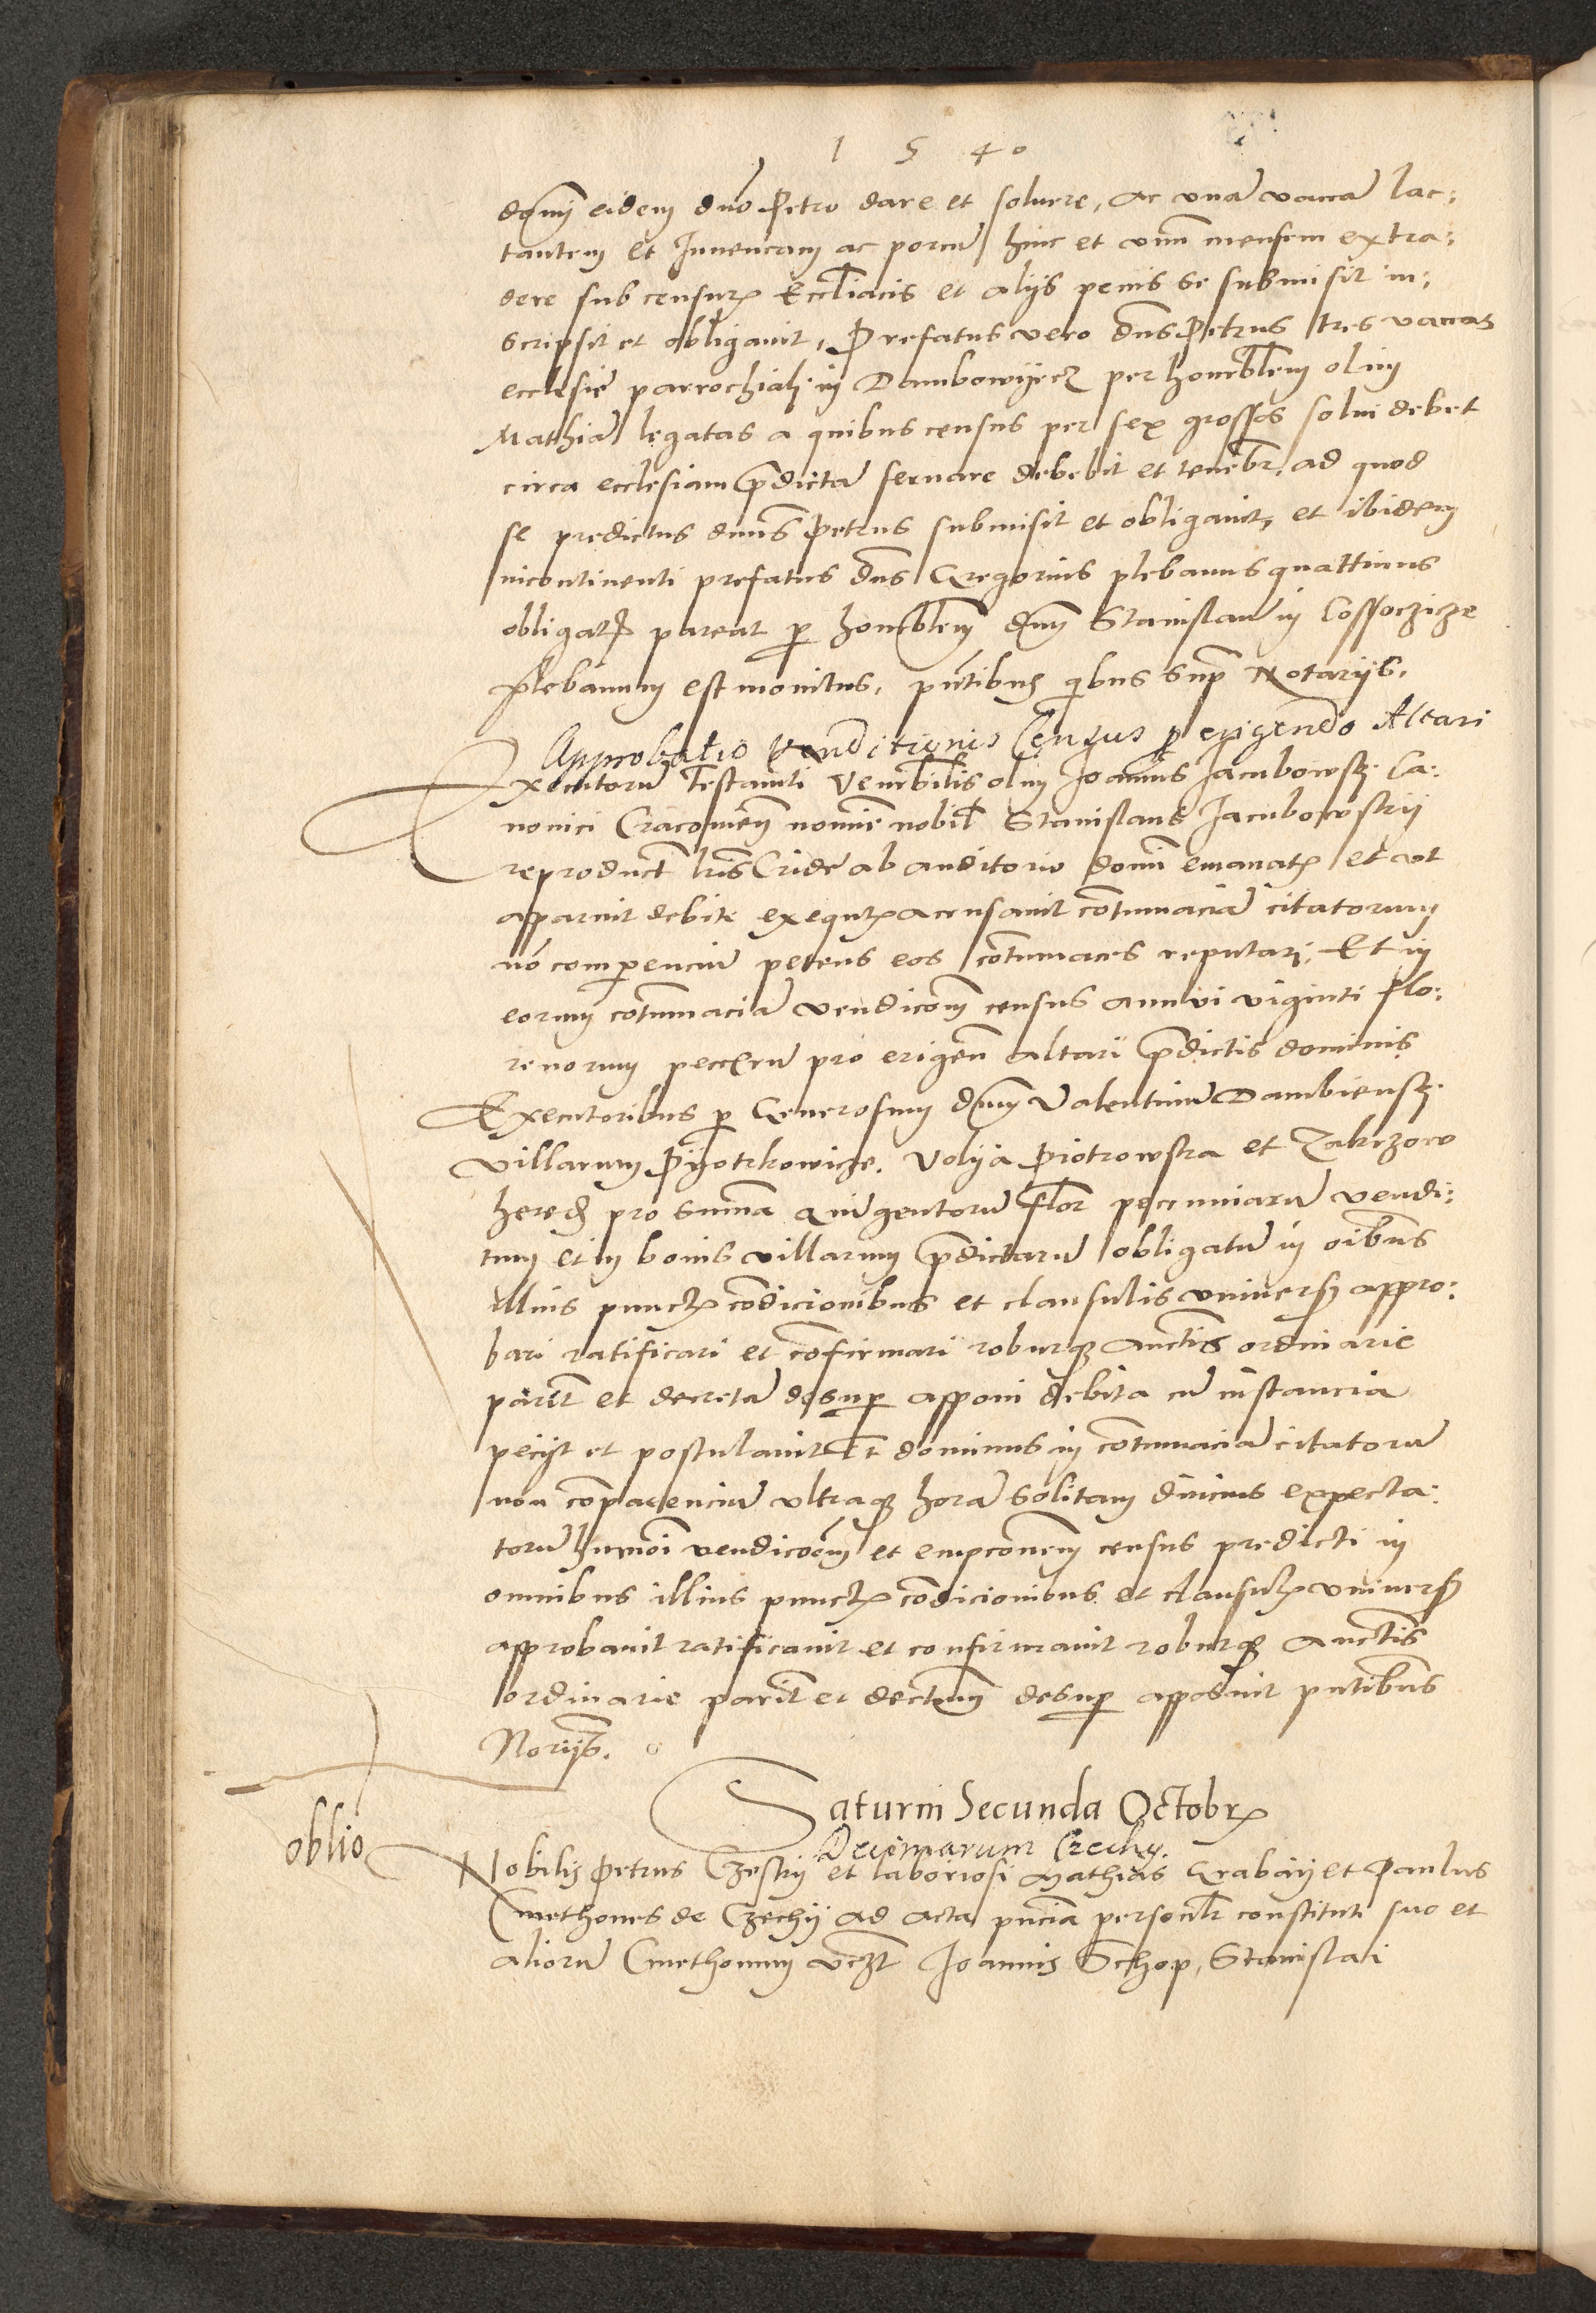 1540
dnum eidem dno Petro dare et soluere, Ac vnam vaccam lac:
tantem et Juuencam ac porcum hinc et vnum mensem extra:
dere sub censuris Ecclasticis et alijs penis se submisit in:
scripsit et obligauit, Prefatus vero dns Petrus tres vaccas
ecclesie parrochiali in Dambowyecz per honorablem olim
Mathiam legatas a quibus census per sex grossos solui debet
circa ecclesiam predictam seruare debebit et tenebitur, ad quod
se predictus dnus Petrus submisit et obligauit, et ibidem
incontinenti prefatus dns Gregorius plebanus quattinus
obligationi pareat per honorablem dnum Stanislaum in Cossoczicze
plebanum est monitus, pntibus quibus supra Notarijs.
Approbatio venditionis Census pro erigendo Altari
Executorum Testamti Venerbilis olim Joannis Jacubowski Ca:
nonici Cracouien nomine nobil Stanislaus Jacubowskij
reproduct lris Cride ab auditorio domini emanatis et vt
apparuit debite exequtis accusauit contumaciam citatorum
non comperencium petens eos contumaces reputari, Et in
eorum contumaciam vendicionem census annui viginti flo:
renorum peccuniarum pro erigendo altari predictis dominis
Executoribus per Generosum dnum Valentinum Dambiensky
villarum Pyotrkowicze, Volya Piotrowska et Zakrzow
hered pro summa quingentorum flor peccuniarum vendi:
tum et in bonis villarum predictarum obligatum in oibus
illius punctis condicionibus et clausulis vniuersis appro:
bari ratificari et confirmari roburque auctis ordinarie
pariter et decretum desuper apponi debita cum instancia
pecijt et postulauit Et dominus in contumaciam citatorum
non comparencium vltraque horam solitam diucius expecta:
torum humoi vendicioem et empcionem census predicti in
omnibus illius punctis condicionibus et clausulis vniuersis
approbauit ratificauit et confirmauit roburque auctis
ordinarie pariter et decretum desuper apposuit pntibus
Norijs.
Saturni Secunda Octobris
Decimarum Czechy.
oblio
Nobilis Petrus Czeskij et laboriosi Mathias Grabaij et Paulus
Cmethones de Czechij ad acta pncia personalr constituti suo et
aliorum Cmethonum vczt Joannis Schop, Stanislai